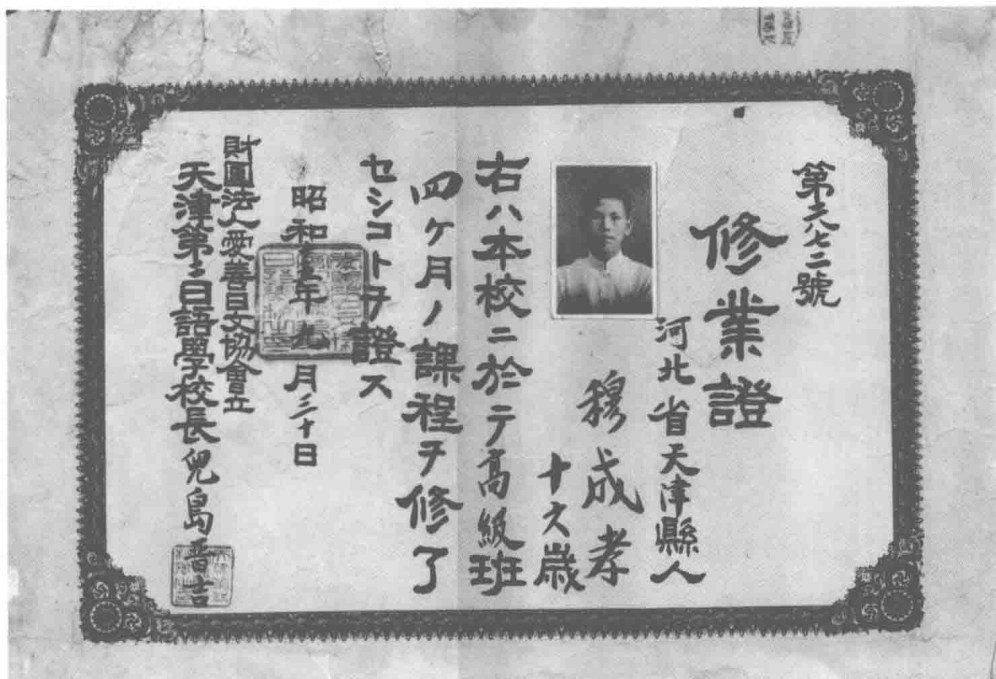 第六七二號
修業證
河北省天津縣人
穆成孝
十六歲
右ハ本校ニ於テ高級班
四ケ月ノ課程ヲ修了
セシコトヲ證ス
昭和 年九月三十日
財團法人愛善日文協會立
天津第二日語學校長兒島晋吉